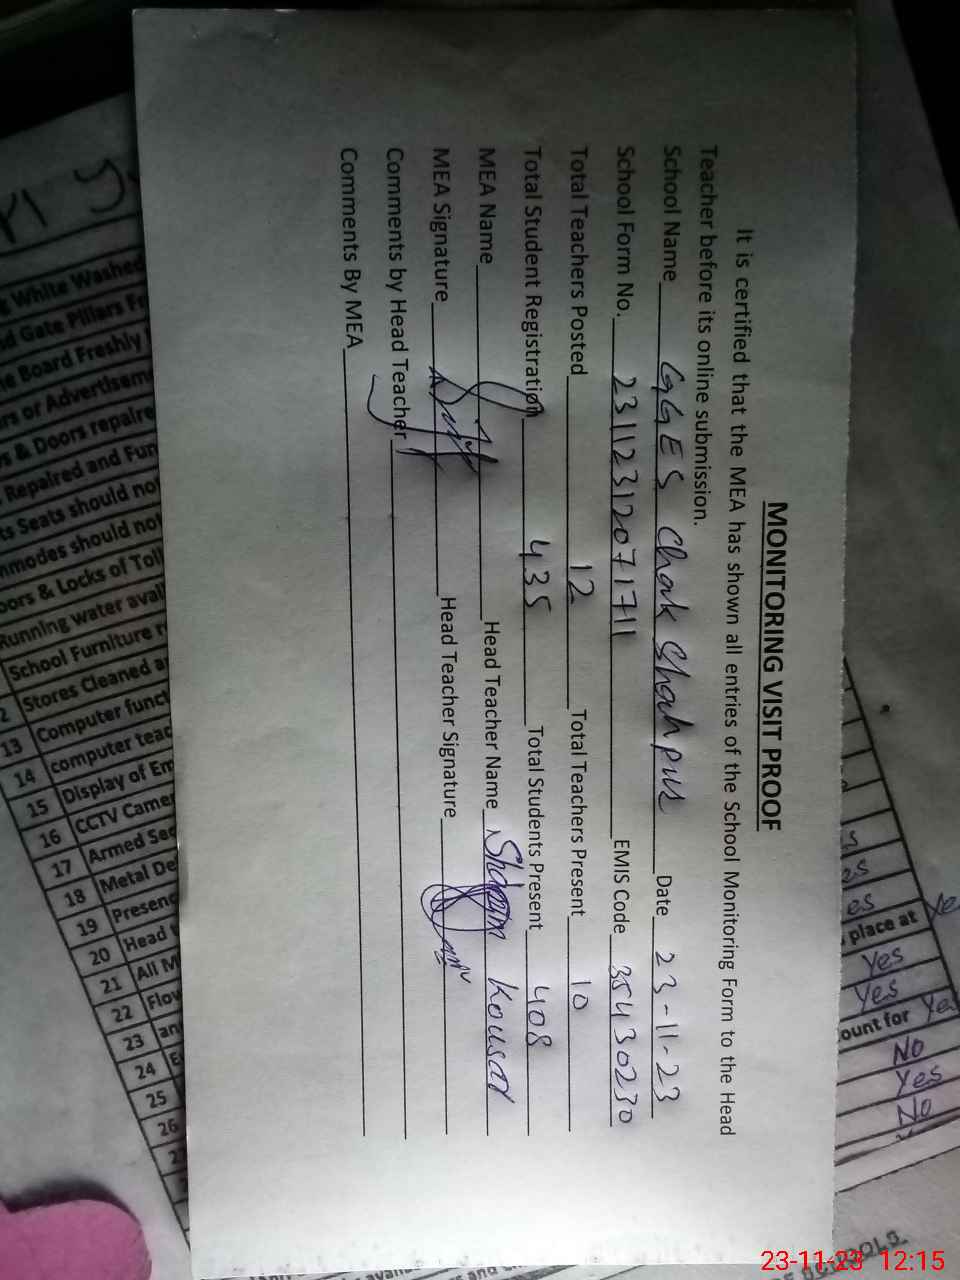 MONITORING VISIT PROOF
It is certified that the MEA has shown all entries of the School Monitoring Form to the Head
Teacher before its online submission.
School Name GGES Chak Shahpur Date 23-11-23
School Form No. 23112312071711 EMIS Code 35430230
Total Teachers Posted 12 Total Teachers Present 10
Total Student Registration 435 Total Students Present 408
MEA Name Head Teacher Name Shamim Kousar
MEA Signature Head Teacher Signature
Comments by Head Teacher
Comments By MEA
White Washed
Gate Pillars
Board Freshly
or Advertisem
& Doors repaire
Repaired and Fun
Seats should not
should not
& Locks of Toil
Running water avail
School Furniture
Stores Cleaned
13 Computer funct
14 computer teac
15 Display of Em
16 CCTV Camer
17 Armed Sec
18 Metal De
19 Presenc
20 Head
21 All M
22 Flow
23 an
24
25
26
place at
Yes
Yes
ount for
No
Yes
No
23-11-23 12:15